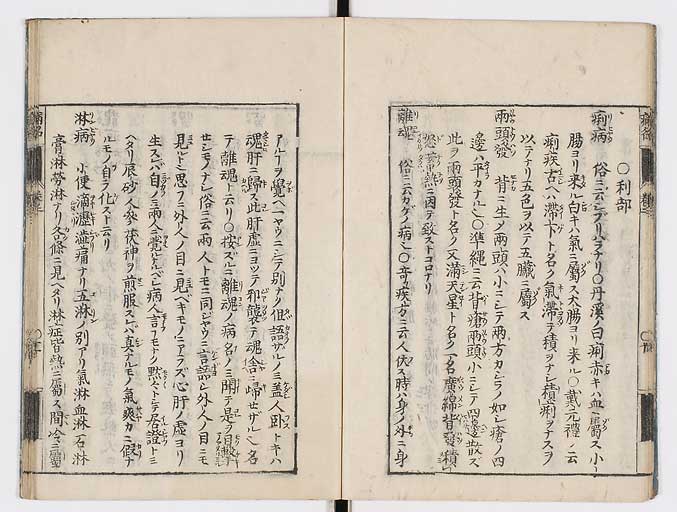 ○利部
痢病 俗ニ云シブリハラナリ○丹溪ノ曰痢赤キハ血ニ屬ス小
腸ヨリ来ル白キハ氣ニ屬ス大腸ヨリ来ル○戴元禮ノ云
痢疾古ヘハ滯下ト名ク氣滯テ積ヲナシ積痢ヲナスヲ
以テナリ五色ヲ以テ五臓ニ屬ス
兩頭發 背ニ生メ兩頭ハ小ニシテ兩方カシラノ如シ瘡ノ四
邊ハ平カナル也○準繩ニ云背瘡兩頭小ニシテ四邊散ズ
此ヲ兩頭發ト名ク又滿天星ト名ク一名廣綿背發積
怒蓄熱ニ因テ致ストコロナリ
離魂 俗ニ云カゲノ病也○奇疾方ニ云人伏ス時ハ身ノ外ニ身
アルヿヲ覺ヘ一ヤウニシテ別ナク但語ザルノミ蓋人臥トキハ
魂肝ニ歸ス此肝虚ニヨッテ邪襲テ魂舎ニ歸セザル也名
テ離魂ト云リ○按ズルニ離魂ノ病名ノミ聞テ是ヲ目撃
セシモノナシ俗ニ云兩人トモニ同ジヤウニ言語シ外人ノ目ニモ
見ルト思フニ外人ノ目ニ見ベキモノニアラズ心肝ノ虚ヨリ
生ズレバ自ノミ兩人ト覺ルベシ病人言フモナク黙々トテ居證ト見
ヘタリ辰砂人参茯神ヲ煎服スレバ真ナルモノ氣爽カニ假ナ
ルモノ自ラ化スト云リ
淋病 小便滴瀝澁痛ナリ五淋ノ別アリ氣淋血淋石淋
膏淋勞淋アリ各條ニ見ヘタリ淋ノ症皆熱ニ屬ス間冷ニ屬